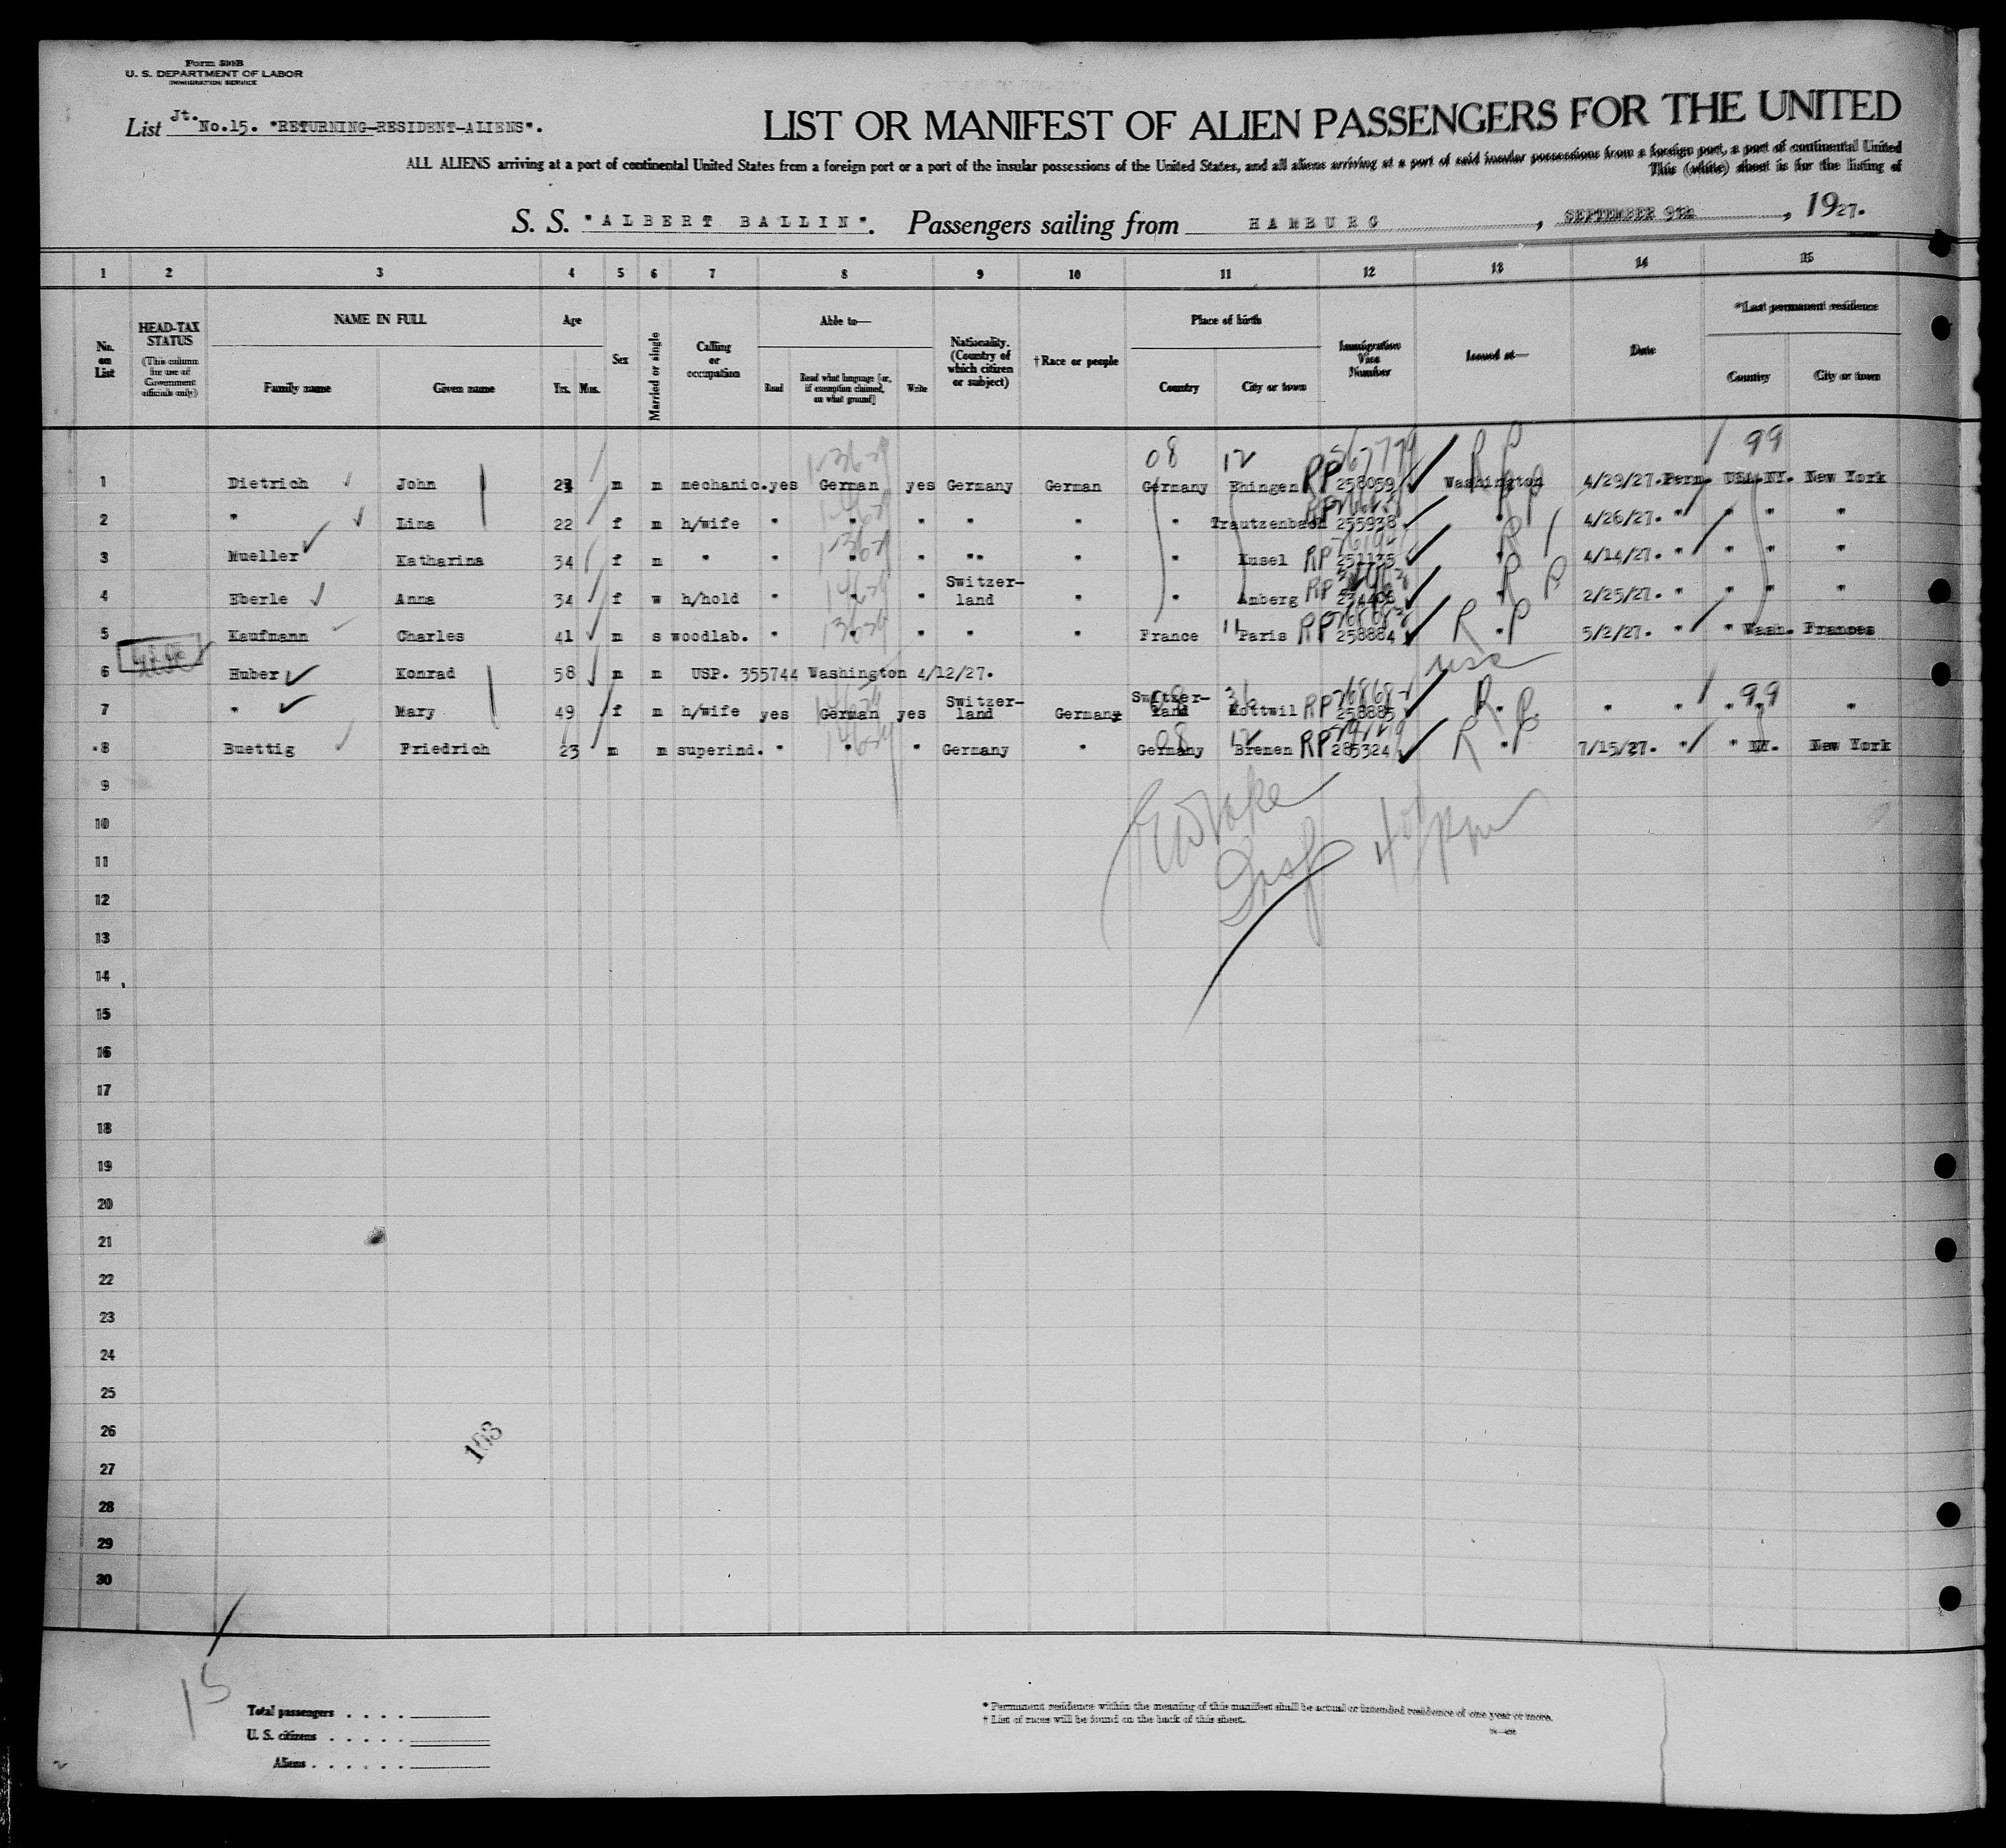 Form 500B
U. S. DEPARTMENT OF LABOR
IMMIGRATION SERVICE
List Jt. No.15. "RETURNING-RESIDENT-ALIENS".
LIST OR MANIFEST OF ALIEN PASSENGERS FOR THE UNITED
ALL ALIENS arriving at a port of continental United States from a foreign port or a port of the insular possessions of the United States, and all aliens arriving at a port of said insular possessions from a foreign port, a port of continental United
This (white) sheet is for the listing of
S. S. "ALBERT BALLIN". Passengers sailing from HAMBURG, SEPTEMBER 9th, 1927.
1 2 3 4 5 6 7 8 9 10 11 12 13 14 15
No. on List
HEAD-TAX STATUS (This column for use of Government officials only)
NAME IN FULL
Family name Given name
Age
Yrs. Mos.
Sex
Married or single
Calling or occupation
Able to—
Read
Read what language [or, if exemption claimed, on what ground]
Write
Nationality. (Country of which citizen or subject)
†Race or people
Place of birth
Country City or town
Immigration Visa Number
Issued at—
Date
*Last permanent residence
Country City or town
08 12 99
1 Dietrich John 23 m m mechanic. yes German yes Germany German Germany Ehingen RP 258059 Washington 4/29/27. Perm. USA.NY. New York
2 " Lina 22 f m h/wife " " " " " " Trautzenbach 255938 " 4/26/27. " " " "
3 Mueller Katharina 34 f m " " " " "" " " Kusel RP 251135 " 4/14/27. " " " "
4 Eberle Anna 34 f w h/hold " " " Switzer-land " " Amberg RP 234406 " 2/25/27. " " " "
5 Kaufmann Charles 41 m s woodlab. " " " " " France 11 Paris RP 258884 R P " 5/2/27. " " Wash. Frances
6 Huber Konrad 58 m m USP. 355744 Washington 4/12/27. USC
7 " Mary 49 f m h/wife yes German yes Switzer-land Germany Switzer-land Kottwil RP 258885 R.P. " " " " " "
99
8 Buettig Friedrich 23 m m superind. " " " Germany " Germany Bremen RP 285324 R P " 7/15/27. " " NY. New York
9
10
11
12
13
14
15
16
17
18
19
20
21
22
23
24
25
26
27
28
29
30
163
15
Total passengers
U. S. citizens
Aliens
* Permanent residence within the meaning of this manifest shall be actual or intended residence of one year or more.
† List of races will be found on the back of this sheet.